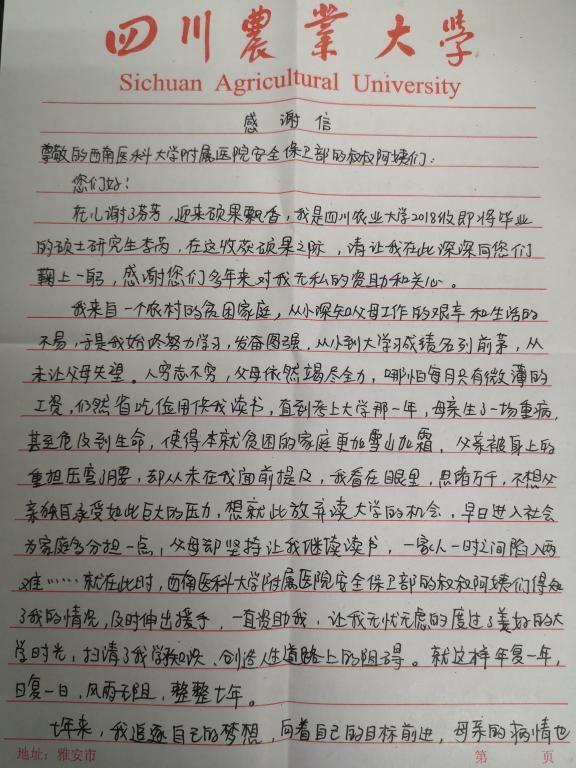 四川農業大學
Sichuan Agricultural University
感谢信
尊敬的西南医科大学附属医院安全保卫部的叔叔阿姨们:
您们好!
花儿谢了芬芳,迎来硕果飘香,我是四川农业大学2018级即将毕业
的硕士研究生李芮,在这收获硕果之际,请让我在此深深向您们
鞠上一躬,感谢您们多年来对我无私的资助和关心。
我来自一个农村的贫困家庭,从小深知父母工作的艰辛和生活的
不易,于是我始终努力学习,发奋图强,从小到大学习成绩名列前茅,从
未让父母失望。人穷志不穷,父母依然竭尽全力,哪怕每月只有微薄的
工资,仍然省吃俭用供我读书,直到考上大学那一年,母亲生了一场重病,
甚至危及到生命,使得本就贫困的家庭更加雪山加霜,父亲被身上的
重担压弯了腰,却从未在我面前提及,我看在眼里,思绪万千,不想父
亲独自承受如此巨大的压力,想就此放弃读大学的机会,早日进入社会
为家庭多分担一点,父母却坚持让我继续读书,一家人一时之间陷入两
难……就在此时,西南医科大学附属医院安全保卫部的叔叔阿姨们得知
了我的情况,及时伸出援手,一直资助我,让我无忧无虑的度过了美好的大
学时光,扫清了我学知识、创造人生道路上的阻碍。就这样年复一年,
日复一日,风雨无阻,整整七年。
七年来,我追逐自己的梦想,向着自己的目标前进,母亲的病情也
地址:雅安市 第 页